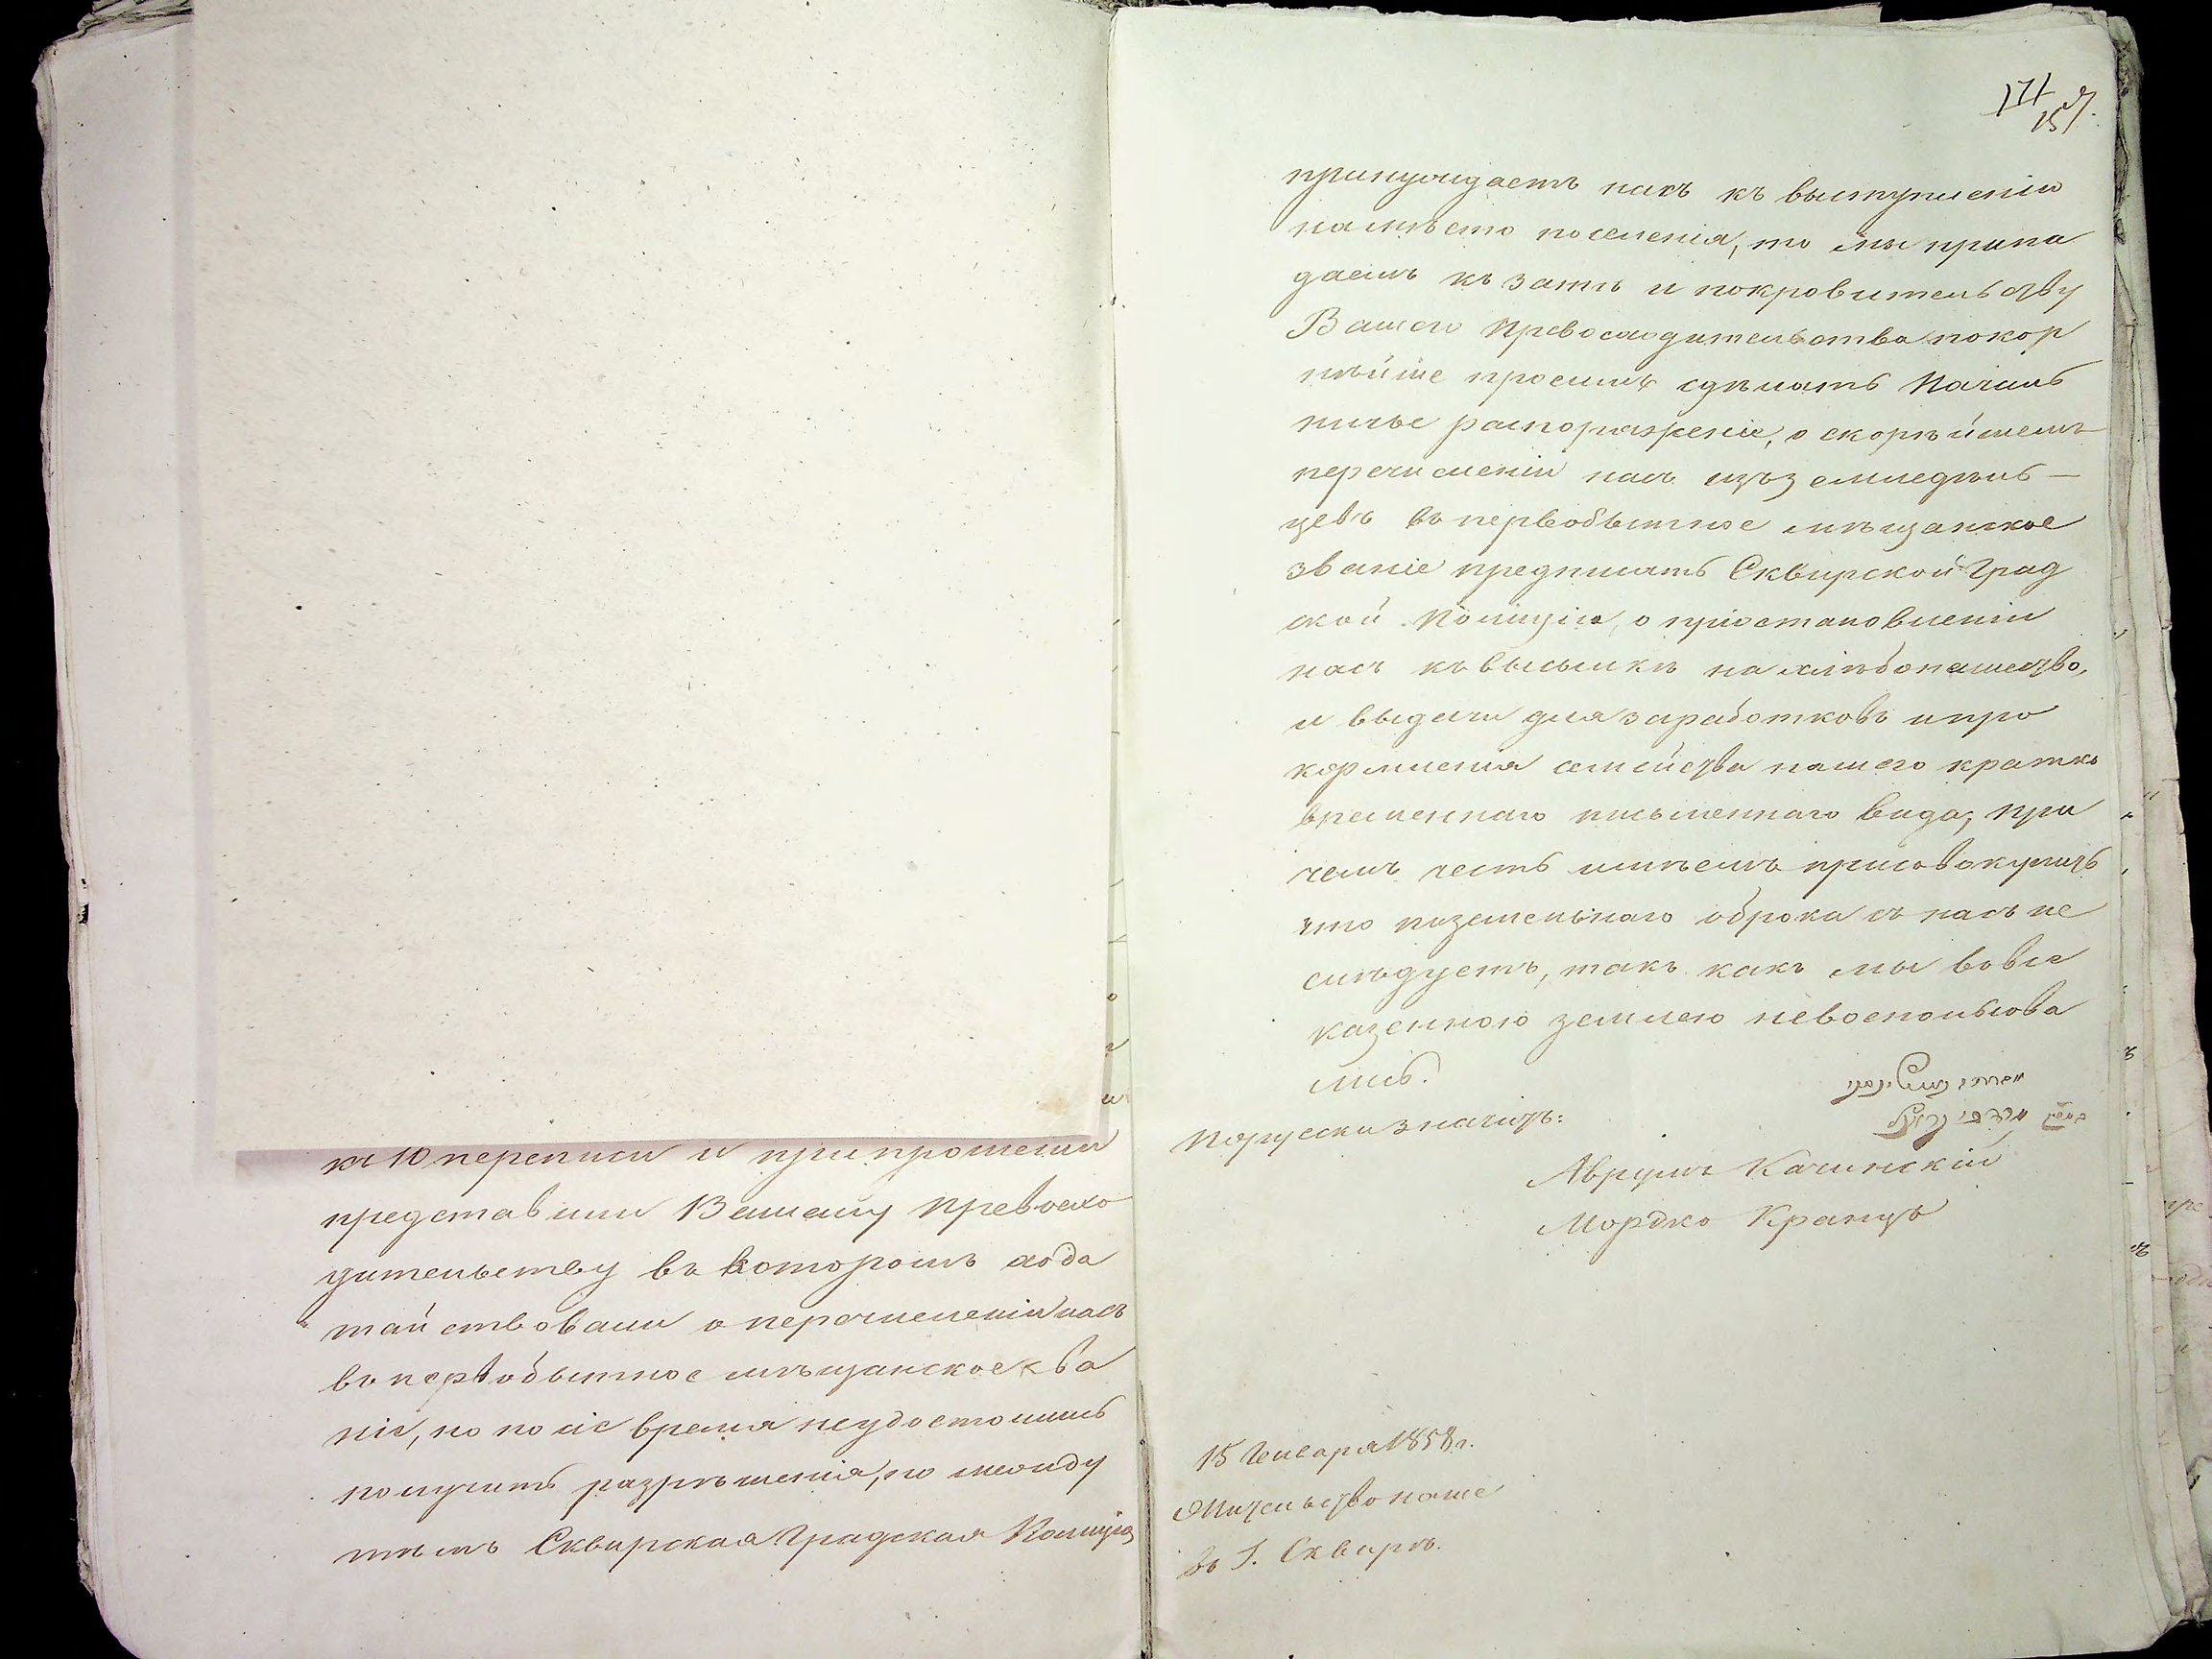 къ 10 переписи и при прошеніи
представили Вашему Превосхо
дительству въ которомъ хода
тайствовали о перечисленіи насъ
въ первобытное мѣщанское зва
ніе, но по сіе время неудостоились
получить разрѣшенія, но между
тѣмъ Сквирская Градская Полиція
171
157.
принуждаетъ насъ къ выступленію
на мѣсто поселенія, то мы припа
даемъ къ защитѣ и покровительству
Вашего Превосходительства покор
нѣйше просимъ сдѣлать Началь
ничье распоряженіе, о скорѣйшемъ
перечисленіи насъ изъ земледѣль-
цевъ въ первобытное мѣщанское
званіе предписать Сквирской Град
ской Полиціи, о пріостановленіи
насъ къ высылкѣ на хлѣбопашество,
и выдачи для заработковъ и про
кормленія семейства нашего кратко
временнаго письменнаго вида, при
чемъ честь имѣемъ присовокупить
что поземельнаго оброка съ насъ не
слѣдуетъ, такъ какъ мы вовсе
казенною землею невоспользова
лись.
По руски значитъ:
Аврумъ Качинскій
Мордко Кранцъ
15 Генваря 1858 г.
Жительство наше
въ Г. Сквирѣ.